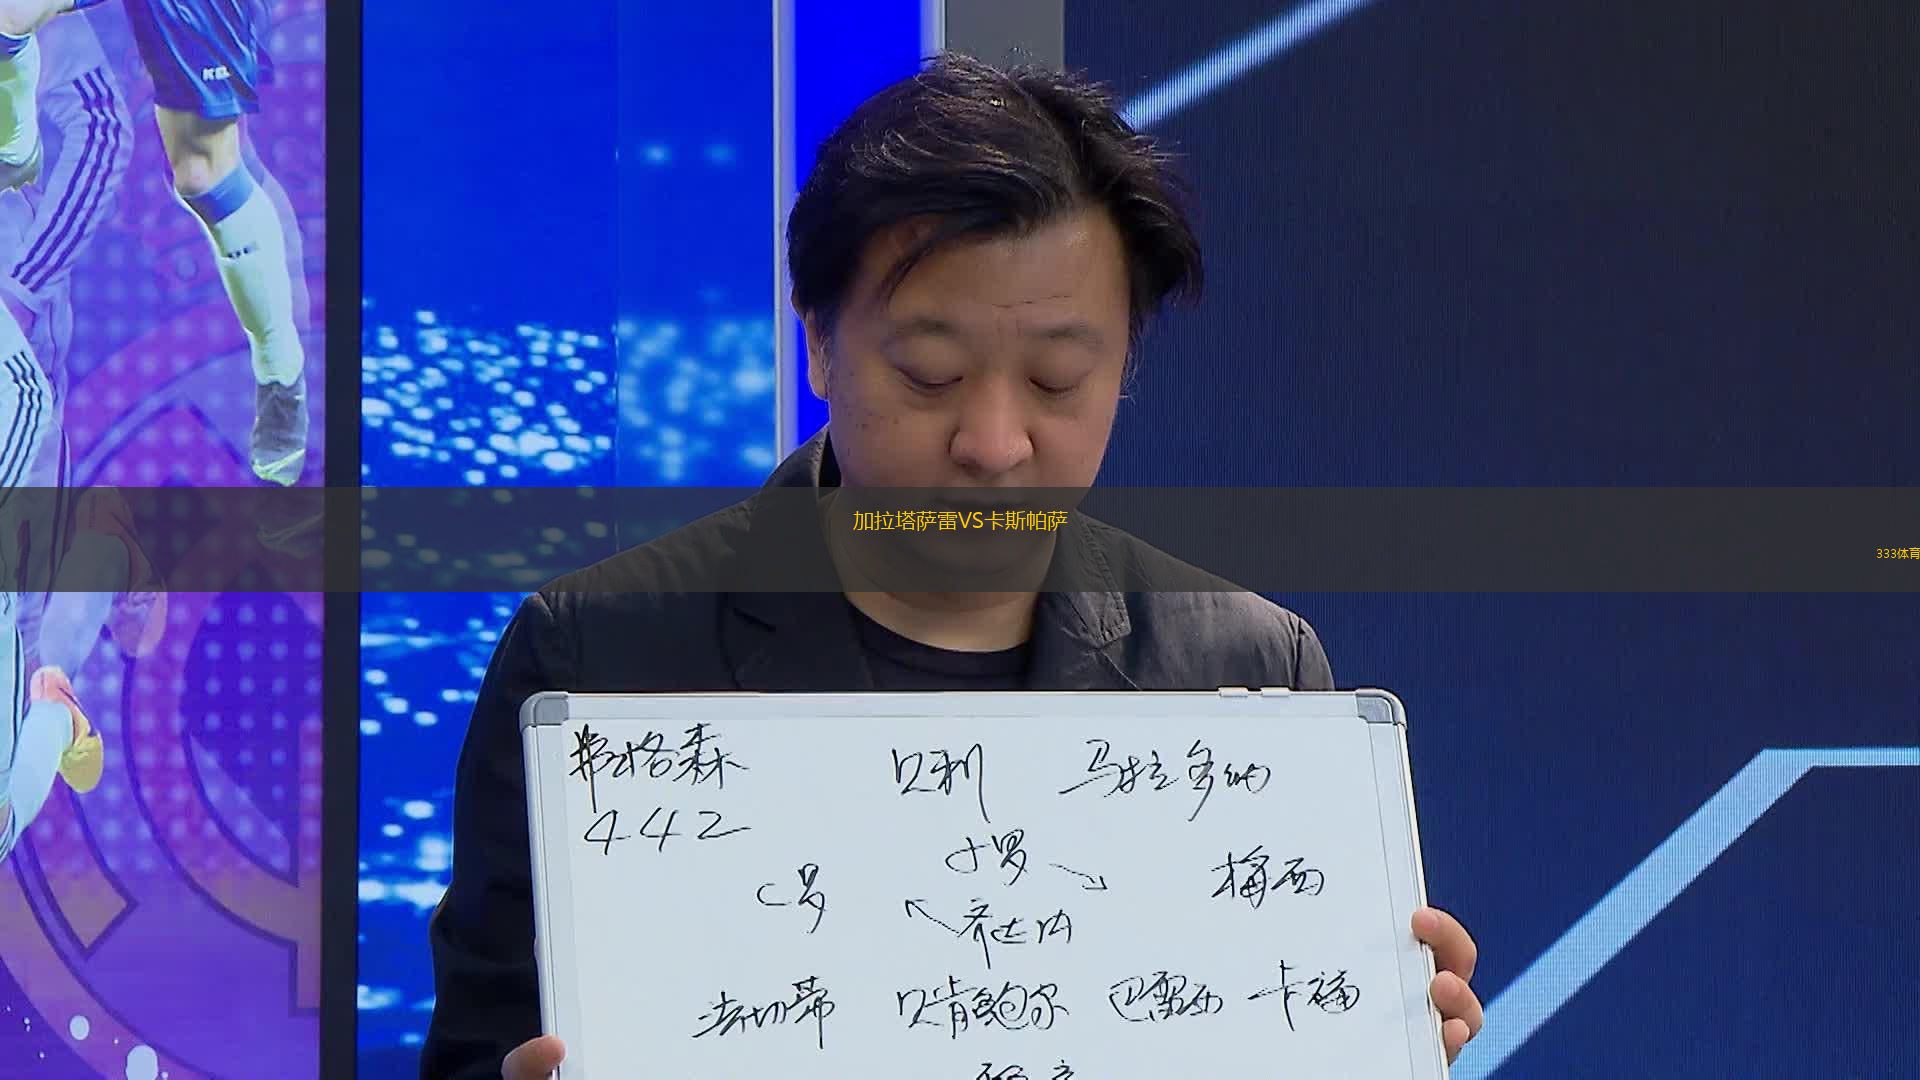 KEL
加拉塔萨雷VS卡斯帕萨
333体育
弗格森 贝利 马拉多纳
442
小罗
C罗 梅西
齐达内
法切蒂 贝肯鲍尔 巴雷西 卡福